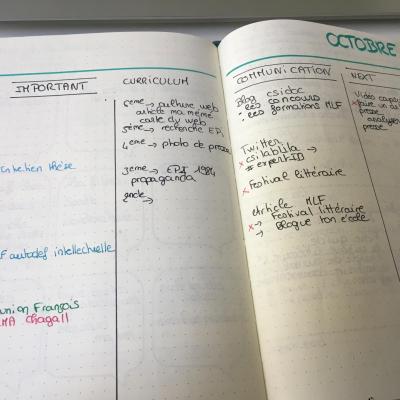 OCTOBRE
IMPORTANT
Entretien thèse
autodef intellectuelle
union François
Chagall
CURRICULUM
6eme → culture web
ma mémé
carte du web
5ème → recherche EPI
4eme → photo de presse
3eme → EPI 1984
propaganda
2nde →
COMMUNICATION
Blog csidoc
• les concours
• les formations MLF
Twitter
x csilablila →
# expertID
x Festival littéraire
Article MLF
x → Festival littéraire
→ Blogue ton école
NEXT
Video
x faire un
presse
analyse
presse